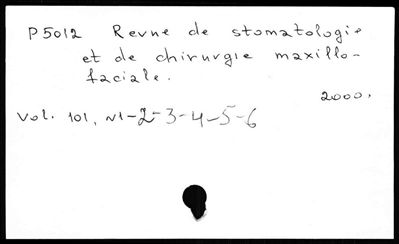 P5012 Revue de stomatologie
et de chirurgie maxillo-
faciale.
2000.
Vol. 101, N1-2-3-4-5-6